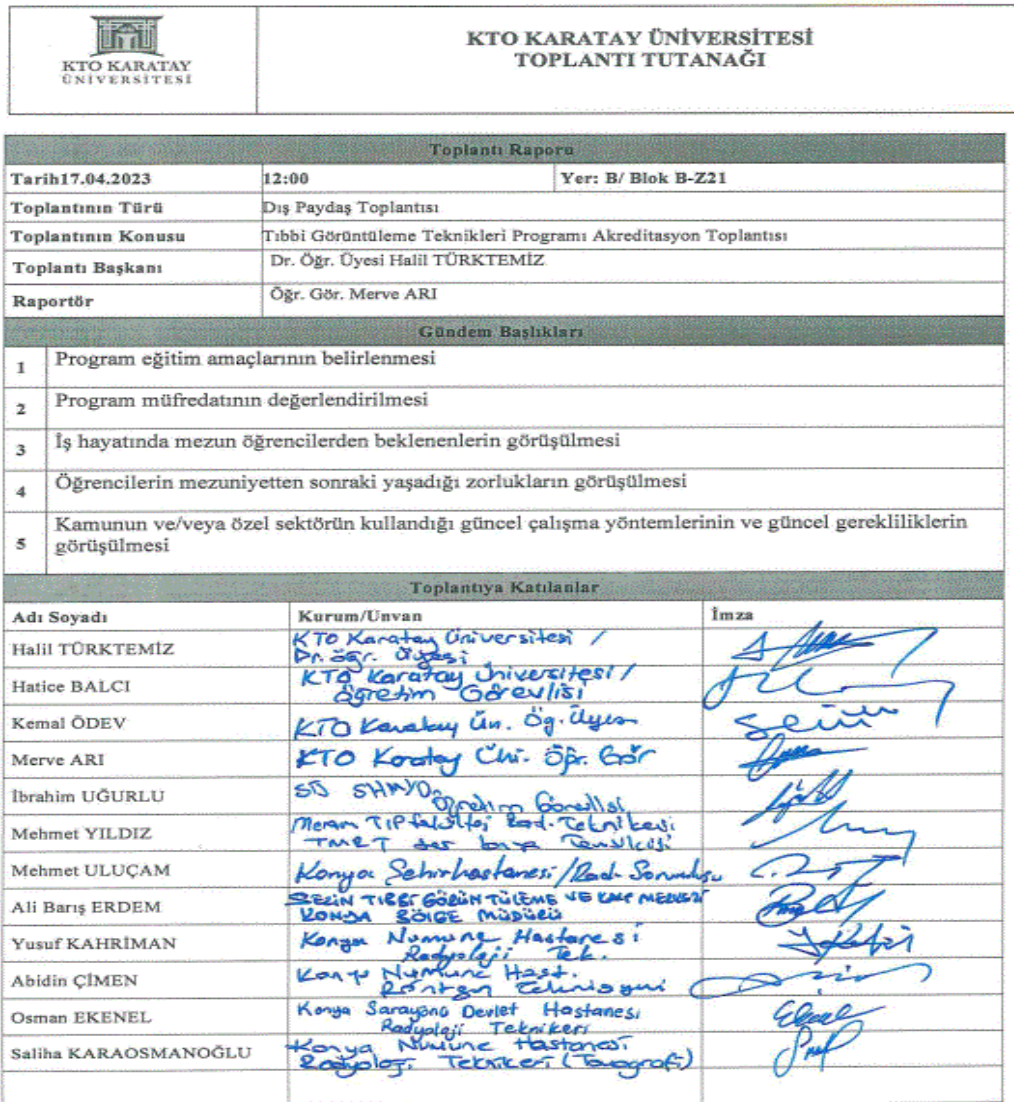 KTO KARATAY
ÜNİVERSİTESİ
KTO KARATAY ÜNİVERSİTESİ
TOPLANTI TUTANAĞI
Toplantı Raporu
Tarih17.04.2023 12:00 Yer: B/ Blok B-Z21
Toplantının Türü Dış Paydaş Toplantısı
Toplantının Konusu Tıbbi Görüntüleme Teknikleri Programı Akreditasyon Toplantısı
Toplantı Başkanı Dr. Öğr. Üyesi Halil TÜRKTEMİZ
Raportör Öğr. Gör. Merve ARI
Gündem Başlıkları
1 Program eğitim amaçlarının belirlenmesi
2 Program müfredatının değerlendirilmesi
3 İş hayatında mezun öğrencilerden beklenenlerin görüşülmesi
4 Öğrencilerin mezuniyetten sonraki yaşadığı zorlukların görüşülmesi
5 Kamunun ve/veya özel sektörün kullandığı güncel çalışma yöntemlerinin ve güncel gerekliliklerin
görüşülmesi
Toplantıya Katılanlar
Adı Soyadı Kurum/Unvan İmza
Halil TÜRKTEMİZ KTO Karatay Üniversitesi /
Dr. öğr. üyesi
Hatice BALCI KTO Karatay Üniversitesi /
öğretim Görevlisi
Kemal ÖDEV KTO Karatay Ün. Öğ. Üyesi
Merve ARI KTO Karatay Üni. Öğr. Gör
İbrahim UĞURLU SÜ SHMYO
Öğretim Görevlisi
Mehmet YILDIZ Meram TIP fakültesi Rad. Teknikeri
TMRT der Temsilcisi
Mehmet ULUÇAM Konya Şehirhastanesi / Rad. Sorumlusu
Ali Barış ERDEM TIBBİ GÖRÜNTÜLEME VE KALP MERKEZİ
KONYA BÖLGE MÜDÜRÜ
Yusuf KAHRİMAN Konya Numune Hastanesi
Radyoloji Tek.
Abidin ÇİMEN Konya Numune Hast.
Röntgen Teknisyeni
Osman EKENEL Konya Sarayönü Devlet Hastanesi
Radyoloji Teknikeri
Saliha KARAOSMANOĞLU Konya Numune Hastanesi
Radyoloji Teknikeri (Tomografi)